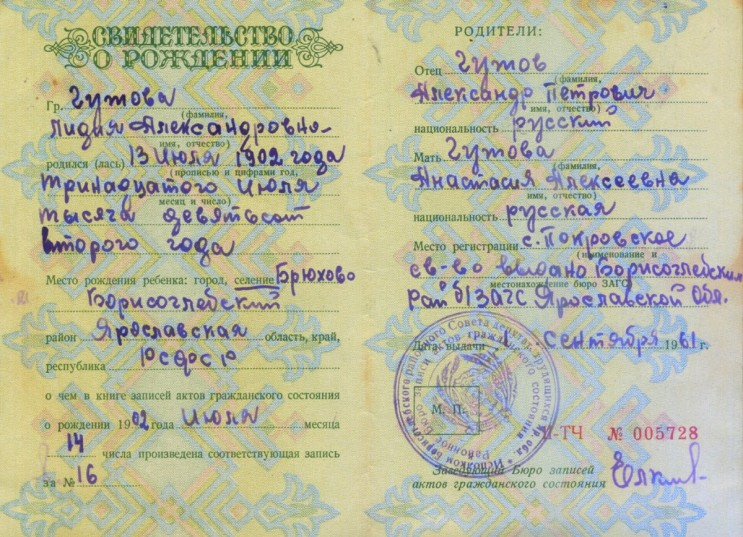 СВИДЕТЕЛЬСТВО
О РОЖДЕНИИ
Гр. Гутова
(фамилия,
Лидия Александровна
имя, отчество)
родился (лась) 13 июля 1902 года
(прописью и цифрами год,
Тринадцатого июля
месяц и число)
тысяча девятьсот
второго года
Место рождения ребенка: город, селение Брюхово
Борисоглебский
район Ярославская область, край,
республика РСФСР
о чем в книге записей актов гражданского состояния
о рождении 1902 года июля месяца
14 числа произведена соответствующая запись
за № 16
РОДИТЕЛИ:
Отец Гутов
(фамилия,
Александр Петрович
имя, отчество)
национальность русский
Мать Гутова
(фамилия,
Анастасия Алексеевна
имя, отчество)
национальность русская
Место регистрации с. Покровское
(наименование и
св-во выдано Борисоглебским
местонахождение бюро ЗАГС)
рай б/ЗАГС Ярославской обл.
Дата выдачи 1 сентября 1961 г.
М. П.
II-ТЧ № 005728
Заведующий Бюро записей
актов гражданского состояния